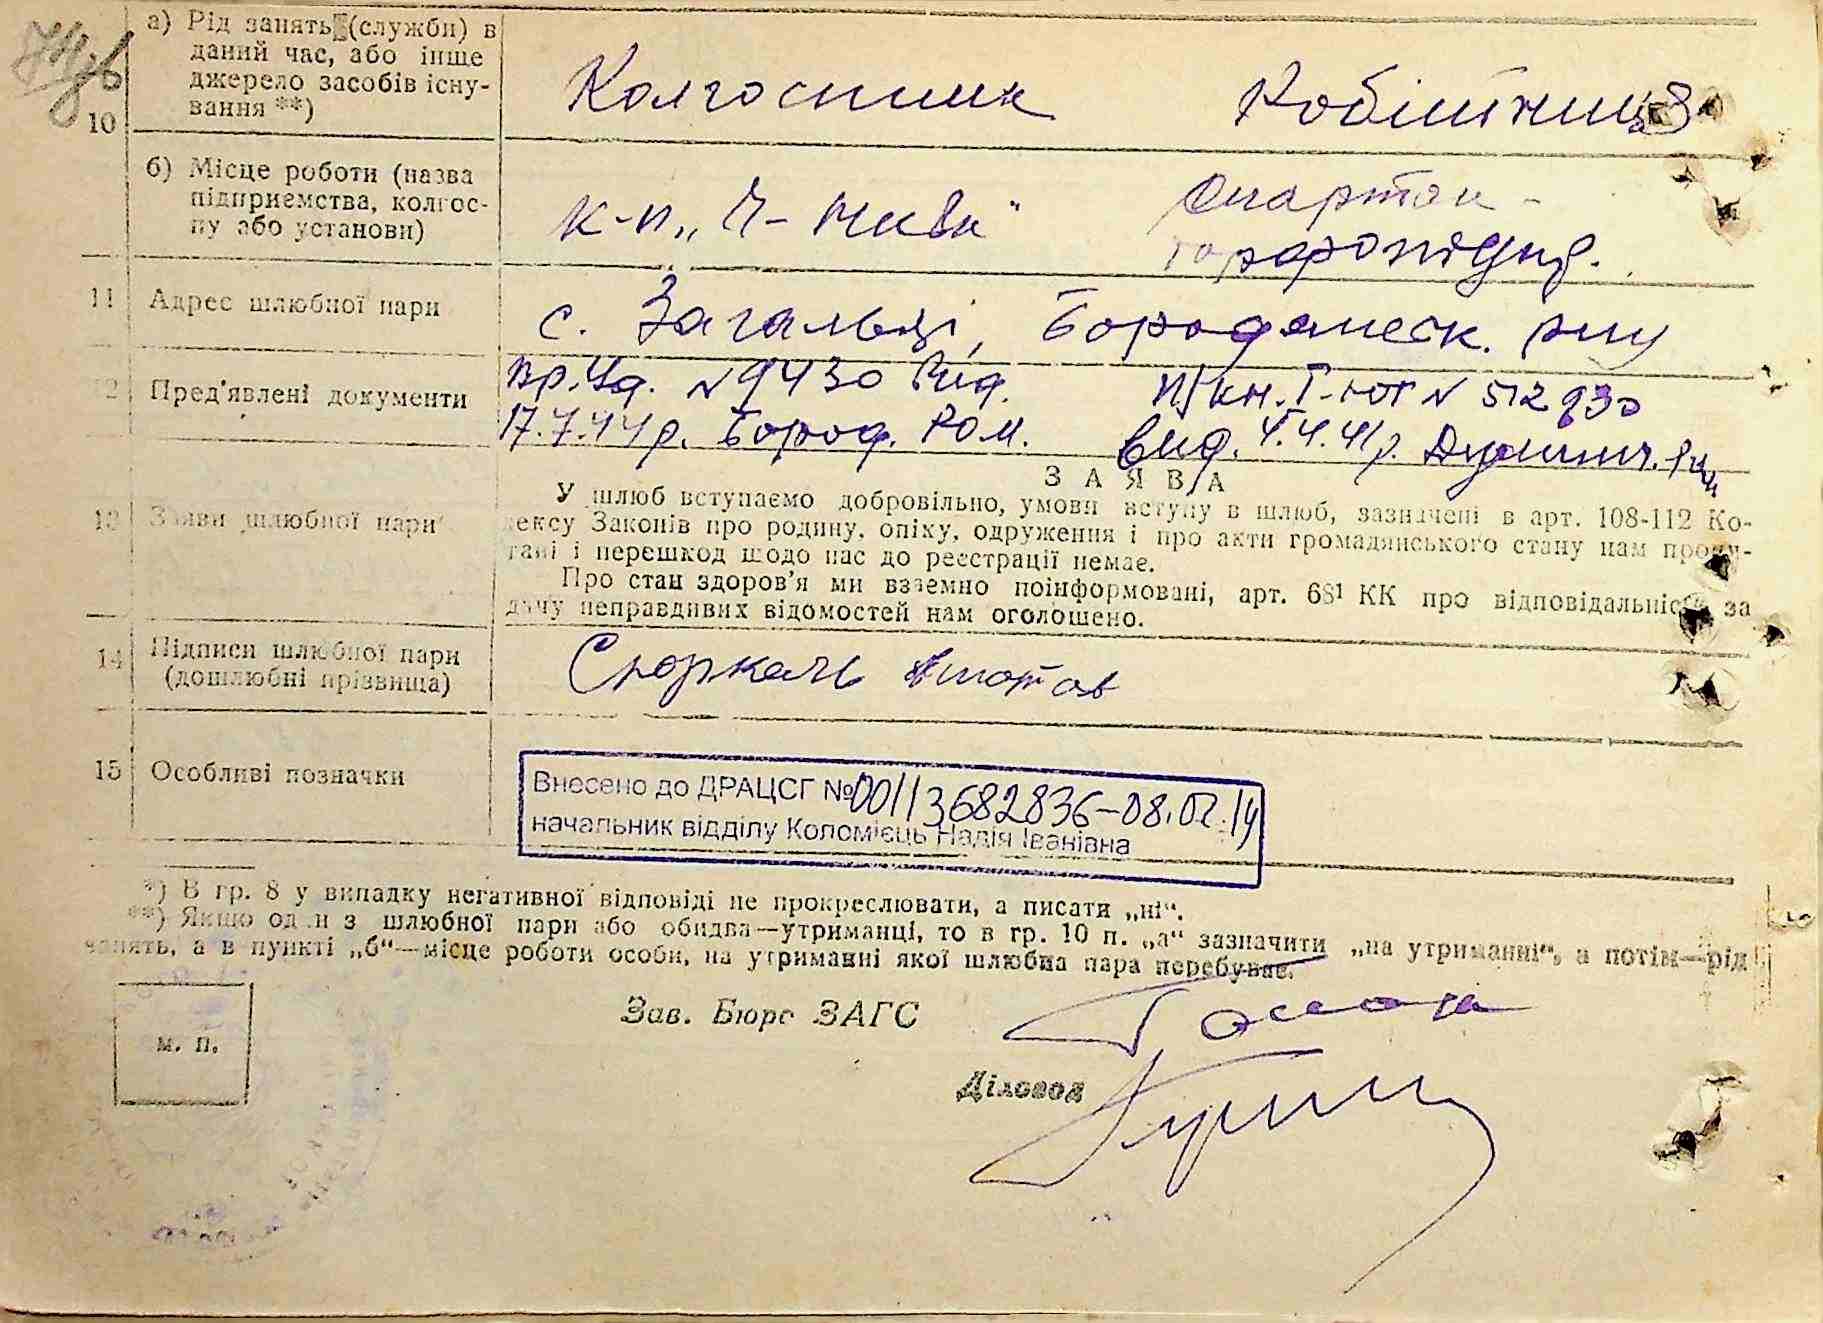 а) Рід занять (служби) в
даний час, або інще
джерело засобів існу-
вання **)
10
Колгоспник Робітниця
б) Місце роботи (назва
підприємства, колгос-
пу або установи)
к-п „Ч-Нива"
11 Адрес шлюбної пари
с. Загальці, Бородянськ. р-ну
12 Пред'явлені документи
вр. уд. № 9430 вид. п/кн. Г-ЮТ № 512930
17.7.44 р. Бород. Р.О.М. вид. 4.4.41 р.
ЗАЯВА
13 Заяви шлюбної пари
У шлюб вступаємо добровільно, умови вступу в шлюб, зазначені в арт. 108-112 Ко-
дексу Законів про родину, опіку, одруження і про акти громадянського стану нам прочи-
тані і перешкод щодо нас до реєстрації немає.
Про стан здоров'я ми взаємно поінформовані, арт. 68¹ КК про відповідальність за
дачу неправдивих відомостей нам оголошено.
14 Підписи шлюбної пари
(дошлюбні прізвища)
15 Особливі позначки
Внесено до ДРАЦСГ №00113682836-08.02.14
начальник відділу Коломієць Надія Іванівна
*) В гр. 8 у випадку негативної відповіді не прокреслювати, а писати „ні“.
**) Якщо один з шлюбної пари або обидва—утриманці, то в гр. 10 п. „а“ зазначити „на утриманні“, а потім—рід
занять, а в пункті „б“—місце роботи особи, на утриманні якої шлюбна пара перебуває.
Зав. Бюро ЗАГС
м. п.
Діловод